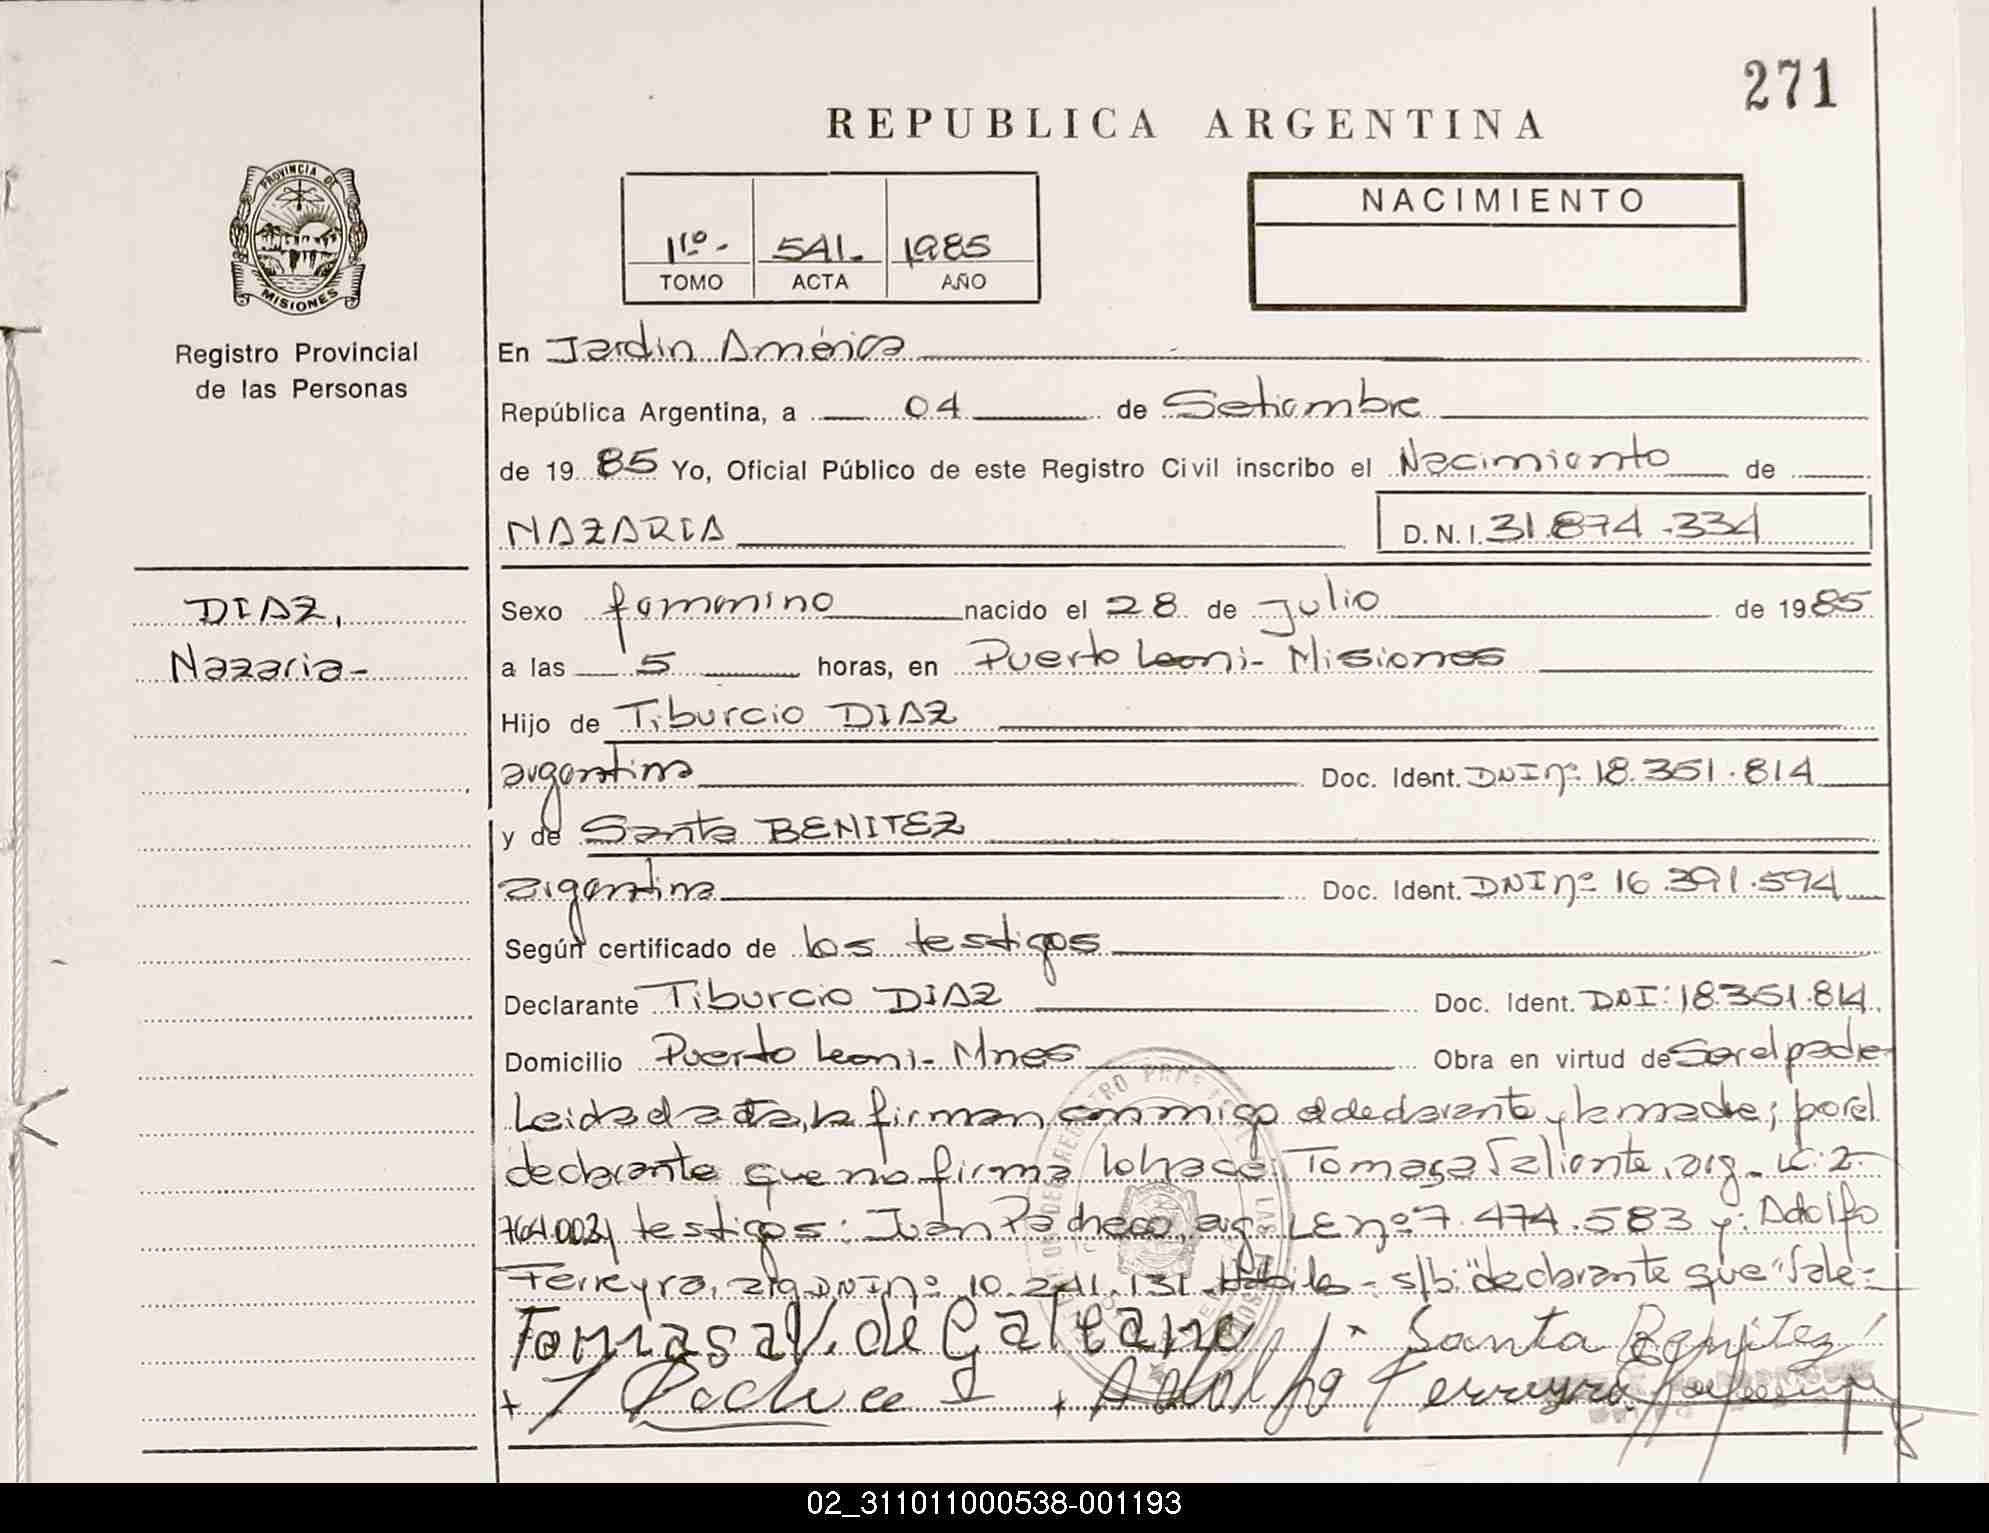 271
REPUBLICA ARGENTINA
PROVINCIA DE
MISIONES
Registro Provincial
de las Personas
1ro.- 541.- 1985
TOMO ACTA AÑO
NACIMIENTO
En Jardin América
República Argentina, a 04 de Setiembre
de 1985 Yo, Oficial Público de este Registro Civil inscribo el Nacimiento de
NAZARIA D. N. I. 31.874.334
DIAZ,
Nazaria-
Sexo femenino nacido el 28 de Julio de 1985
a las 5 horas, en Puerto Leoni- Misiones
Hijo de Tiburcio DIAZ
argentina Doc. Ident. DNI nº 18.351.814
y de Santa BENITEZ
argentina Doc. Ident. DNI nº 16.391.594
Según certificado de los testigos
Declarante Tiburcio DIAZ Doc. Ident. DNI: 18.351.814
Domicilio Puerto Leoni- Mnes Obra en virtud de Ser el padre
Leida el acta, la firman conmigo el declarante y la madre; por el
declarante que no firma lo hace: Tomasa Valiente, arg. LC. 2.
testigos: Juan Pacheco, arg. LE nº 7.474.583 y: Adolfo
Ferreyra, arg DNI nº 10.241.131 s/b: "declarante que" Vale-
Tomasa V. de Galeano Santa Benitez
+ J Pacheco + Adolfo Ferreyra
02_311011000538-001193